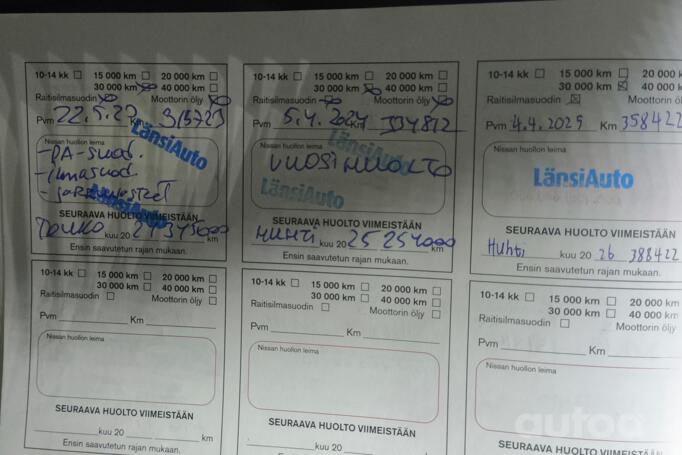 10-14 kk 15 000 km 20 000 km
30 000 km 40 000 km
Raitisilmasuodin Moottorin öljy
Pvm 22.5.23 Km 315723
Nissan huollon leima
LänsiAuto
-PA-suod.
-ilmasuod.
LänsiAuto
SEURAAVA HUOLTO VIIMEISTÄÄN
Touko kuu 20 24 345000 km
Ensin saavutetun rajan mukaan.
10-14 kk 15 000 km 20 000 km
30 000 km 40 000 km
Raitisilmasuodin Moottorin öljy
Pvm 5.4.2024 Km 334812
Nissan huollon leima
LänsiAuto
VUOSIHUOLTO
SEURAAVA HUOLTO VIIMEISTÄÄN
HUHTI kuu 20 25 254000 km
Ensin saavutetun rajan mukaan.
10-14 kk 15 000 km 20 000 k
30 000 km 40 000
Raitisilmasuodin Moottorin öl
Pvm 4.4.2025 Km 358422
Nissan huollon leima
LänsiAuto
SEURAAVA HUOLTO VIIMEISTÄÄN
Huhti kuu 20 26 388422
Ensin saavutetun rajan mukaan.
10-14 kk 15 000 km 20 000 km
30 000 km 40 000 km
Raitisilmasuodin Moottorin öljy
Pvm Km
Nissan huollon leima
SEURAAVA HUOLTO VIIMEISTÄÄN
kuu 20 km
Ensin saavutetun rajan mukaan.
10-14 kk 15 000 km 20 000 km
30 000 km 40 000 km
Raitisilmasuodin Moottorin öljy
Pvm Km
Nissan huollon leima
SEURAAVA HUOLTO VIIMEISTÄÄN
kuu 20 km
10-14 kk 15 000 km 20 000
30 000 km 40 000
Raitisilmasuodin Moottorin
Pvm Km
Nissan huollon leima
SEURAAVA HUOLTO VIIMEISTÄÄN
autoa